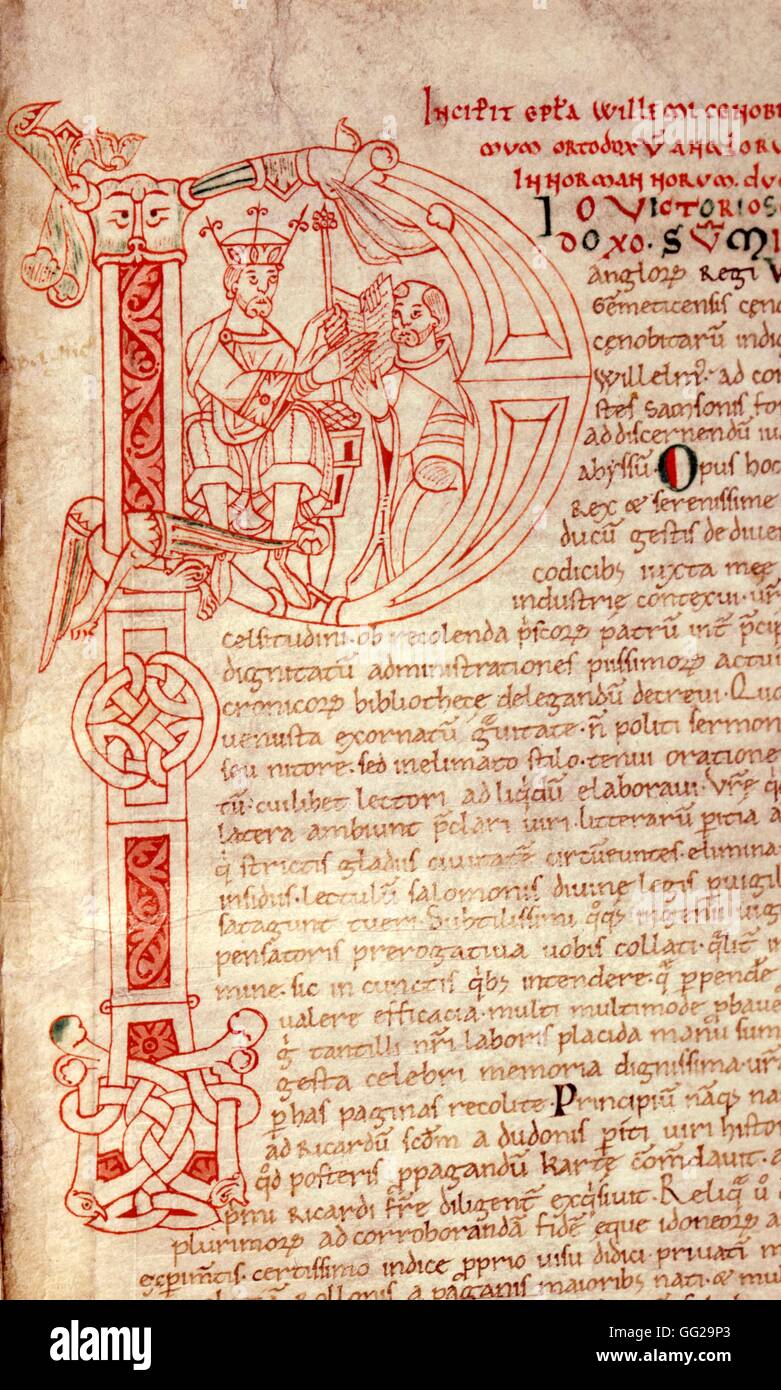 Incipit epła Willemi cenobi
mum ortodoxū Anglorū
in Normannorum. duc
IO VICTORIOS
DOXO. SVMI
anglorꝝ Regi
Gemeticensis cęn
cęnobitarū indi
Willelm⁹. ad co
stes Samsonis fo
ad discernendū iu
abyssū. Opus hoc
Rex & serenissime
ducū gestis de dive
codicibꝰ iuxta meę
industrię contexui. vr̄
celsitudini. ob recolenda pͥscorꝝ patrū int̄ pͥcip
dignitatū administrationes piissimorꝝ actui
cronicorꝝ bibliothecę delegandū decrevi. Quo
venusta exornatū gͣvitate. n̄ politi sermon
seu nitore. sed inelimato stilo. tenui oratione
tū. cuilibet lectori ad liqͥdū elaboravi. Vrę̄
latera ambiunt p̄clari viri. litterarū ꝑitia a
qͥ strictis gladiis civitatē circūeuntes. elimina
insidiis. lectulū salomonis divinę legis pvigil
satagunt tueri. Subtilissimi
pensatoris prerogativa vobis collati. qͣlit̄ in
mine. sic in cunctis qͥbꝰ intendere. qͣ perpende
valere efficacia. multi multimode ꝓbave
gͦ tantilli nr̄i laboris placida manū sum
gesta celebri memoria dignissima. vr̄a
ꝑ has paginas recolite. Principiū nāqꝫ na
ad Ricardū scđm a dudonis ꝑiti viri histor
qͦd posteris ꝓpagandū kartę com̄davit. a
pͥmi Ricardi fr̄e diligent̄ exqͥsivit. Reliqͣ uͦ
plurimorꝝ ad corroborandā fidē ęque idoneorꝝ
experim̄tis. certissimo indice ꝓprio visu didici. privatī
Rollonis a paganis maioribꝰ nati. & mul
alamy
Image ID: GG29P3
www.alamy.com